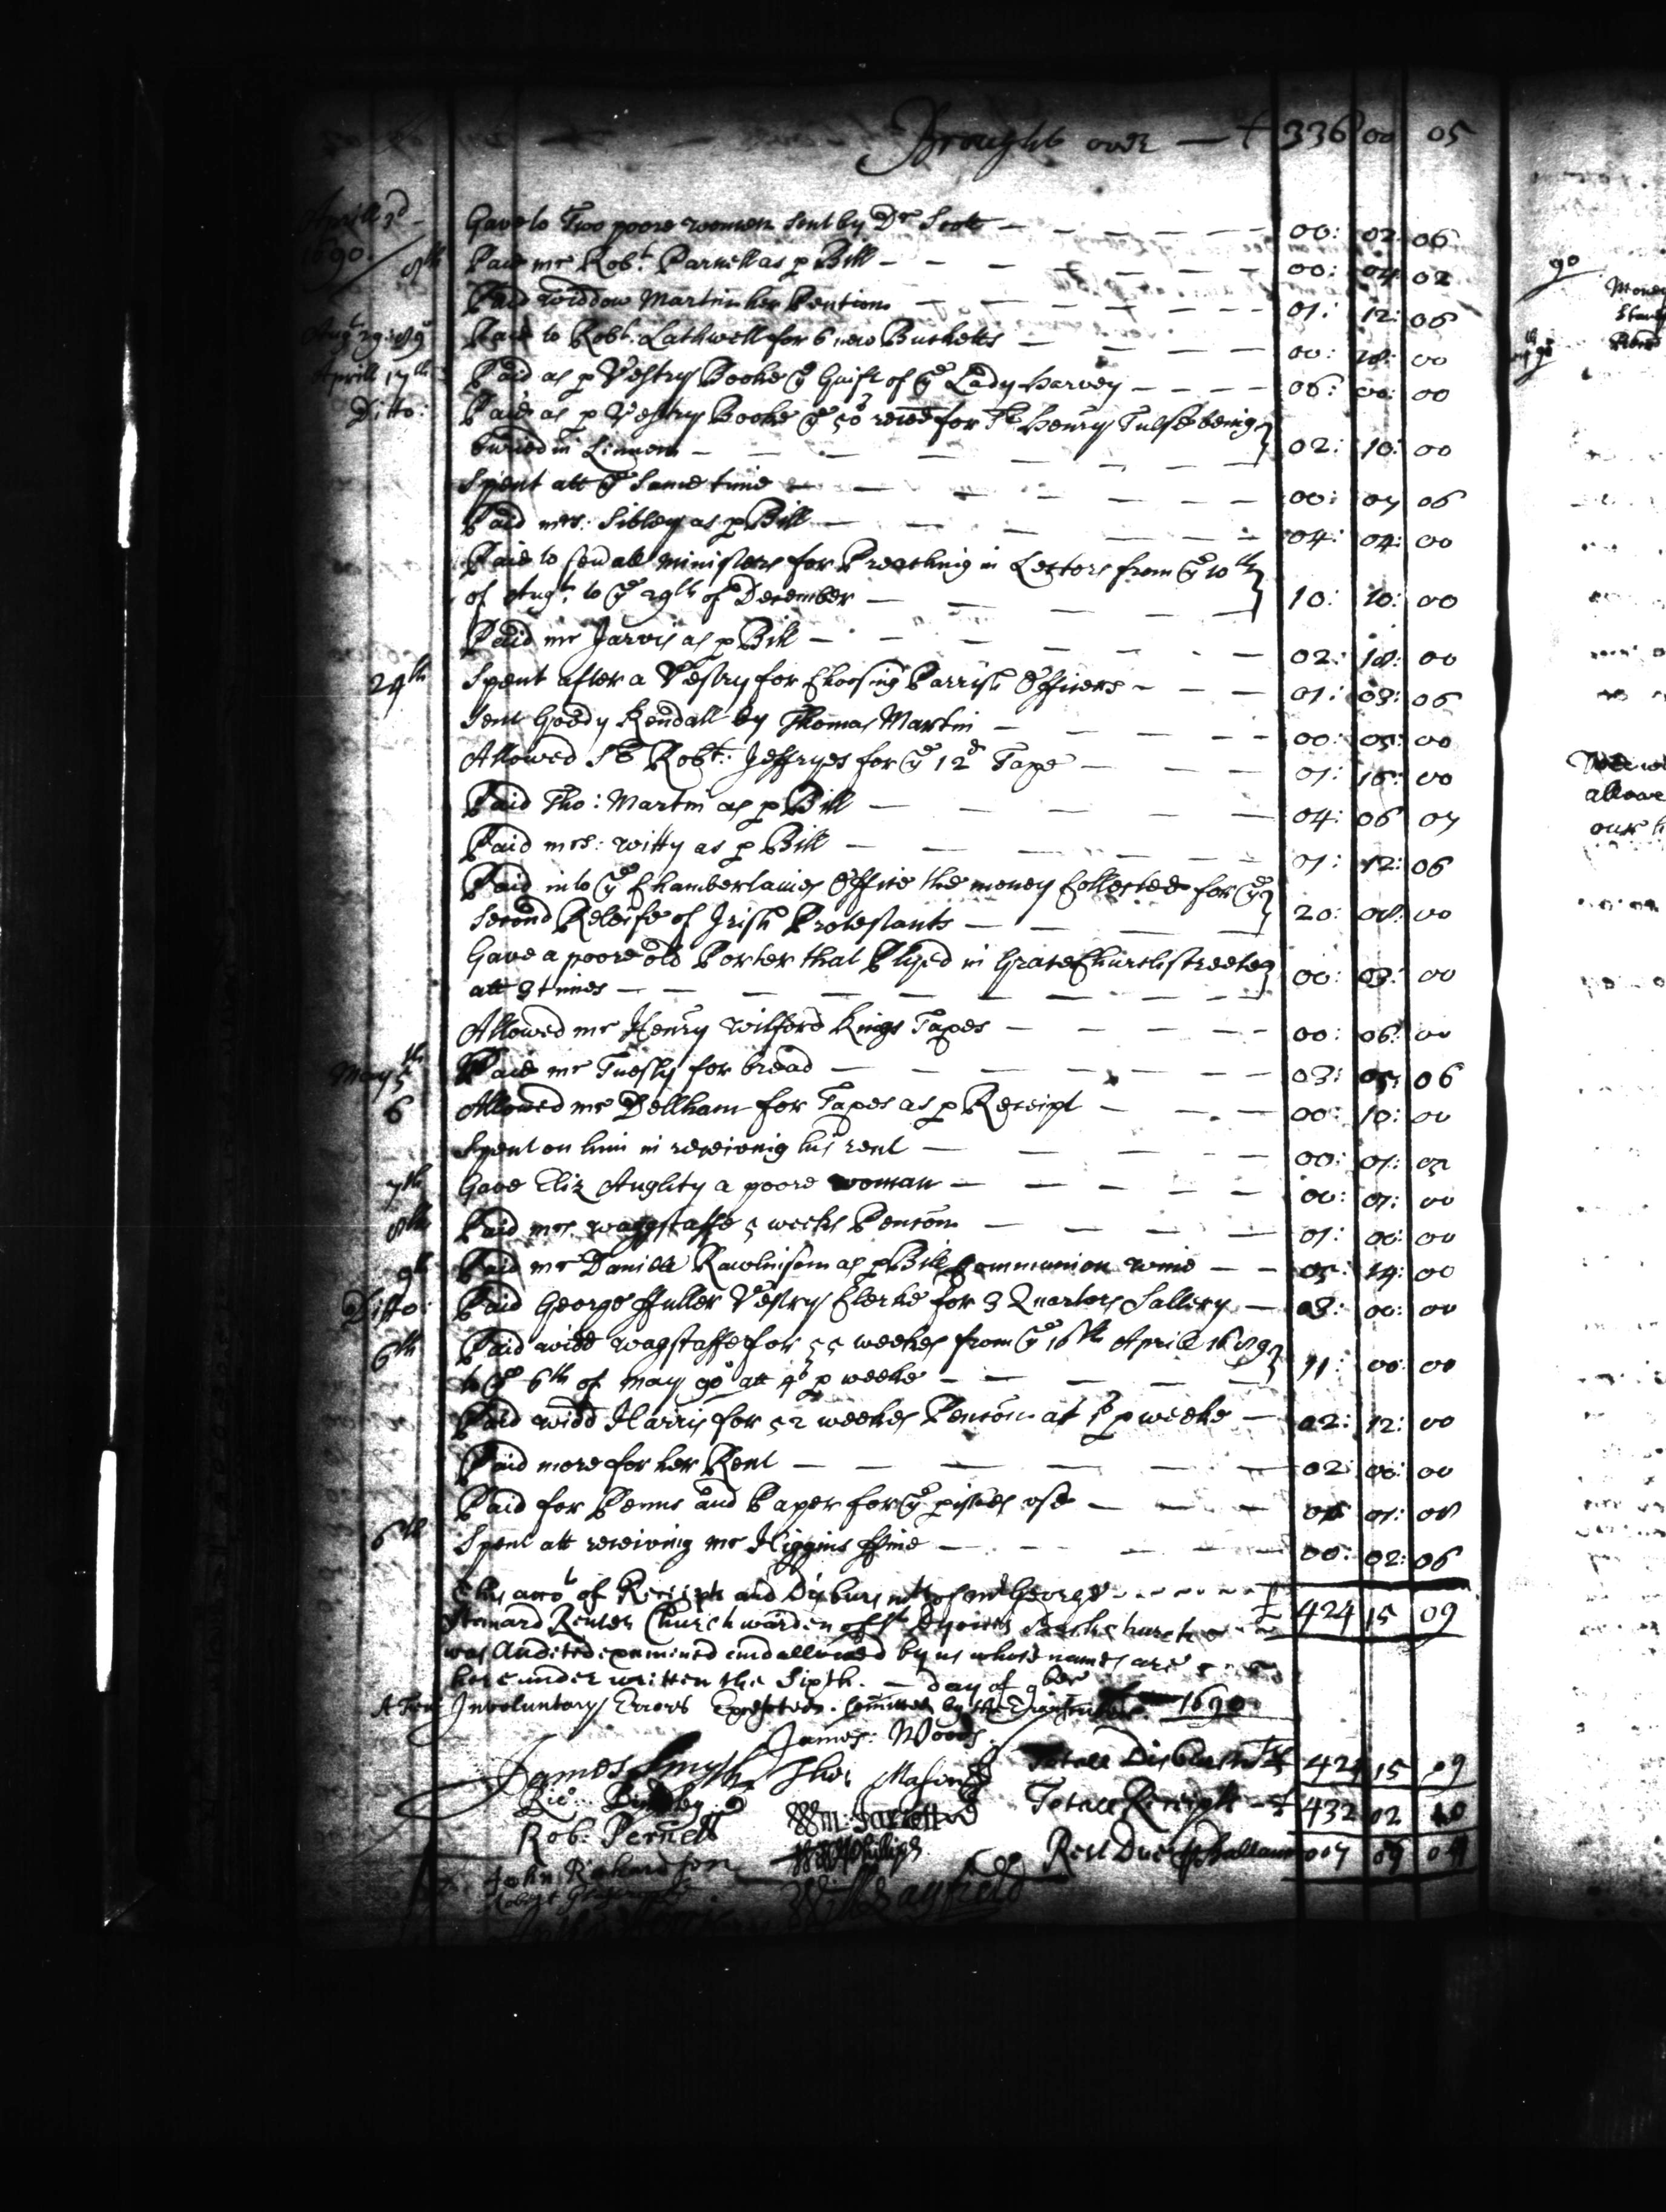 Brought over — £ 336 00 05
Aprill 3d 1690 Gave to Two poore women sent by Dr Scott 00: 02: 06
8th Paid mr Robt: Parnell as p Bill 00: 04: 02
Paid widdow Martin her Pention 01: 12: 06
Augt 29: 89 Paid to Robt: Lathwell for 6 new Bucketts 00: 18: 00
Aprill 17th Paid as p Vestry Booke ye Guift of ye Lady Harvey 06: 00: 00
Ditto: Paid as p Vestry Booke ye 50s reced for Sr Henry Tulse being
buried in Linnen 02: 10: 00
Spent att ye same time 00: 07 06
Paid mrs: Sibley as p Bill 04: 04: 00
Paid to sevall ministers for Preaching in Lectors from ye 10th
of Augt: to ye 29th of December 10: 10: 00
Paid mr Jarvis as p Bill 02: 18: 00
24th Spent after a Vestry for Choosing Parrish Officers 01: 03: 06
Sent Goody Kendall by Thomas Martin 00: 05: 00
Allowed Sr Robt: Jeffryes for ye 12d Tape 01: 16: 00
Paid Tho: Martin as p Bill 04: 06 07
Paid mrs: Witty as p Bill 01: 12: 06
Paid into ye Chamberlaines Office the money Collected for ye
second Releife of Irish Protestants 20: 08: 00
Gave a poore old Porter that Plyed in GraceChurch streete
att 3 times 00: 03: 00
Allowed mr Henry Wilford Kings Tapes 00: 06: 00
May 5th Paid mr Tuesly for bread 03: 05: 06
6 Allowed mr Dellham for Tapes as p Receipt 00: 10: 00
Spent on him in receiving his rent 00: 01:
7th Gave Eliz Aughty a poore woman 00: 01: 00
8th Paid mrs. Waggstaffe 5 weeks Pencon 01: 00: 00
9th Paid mr Daniell Rawlinson as p Bill Communion wine 05: 14: 00
Ditto: Paid George ffuller Vestry Clerke for 3 Quarters Sallery 03: 00: 00
6th Paid widd Wagstaffe for 55 weekes from ye 16th Aprill 1689
to ye 6th of May 90 att 4s p weeke 11: 00: 00
Paid widd Harris for 52 weekes Pencon at 1s p weeke 02: 12: 00
Paid more for her Rent 02: 00: 00
Paid for Penns and Paper for ye pishes use 00 01: 08
6th Spent att receiving mr Higgins ffine 00: 02: 06
This acct of Receipts and Disbursmts of mr George £ 424 15 09
Stenard Renter Church warden of St Dyonis Backchurch
was Audited examined and allowed by us whose names are
here under written the Sixth day of 9ber
A Few Involuntary Errors Excepted Committed by the 1690
James: Woods
James Smyth Tho: Mason Totall Disbursmts £ 424 15 09
Ric: Wm: Jarrett Totall Receipts £ 432 02 10
Rob: Pernell Will Phillips
John Richardson Rest Due p Ballance 007 09 04
Robert
Will Bayfield
90
Money
allowe
our